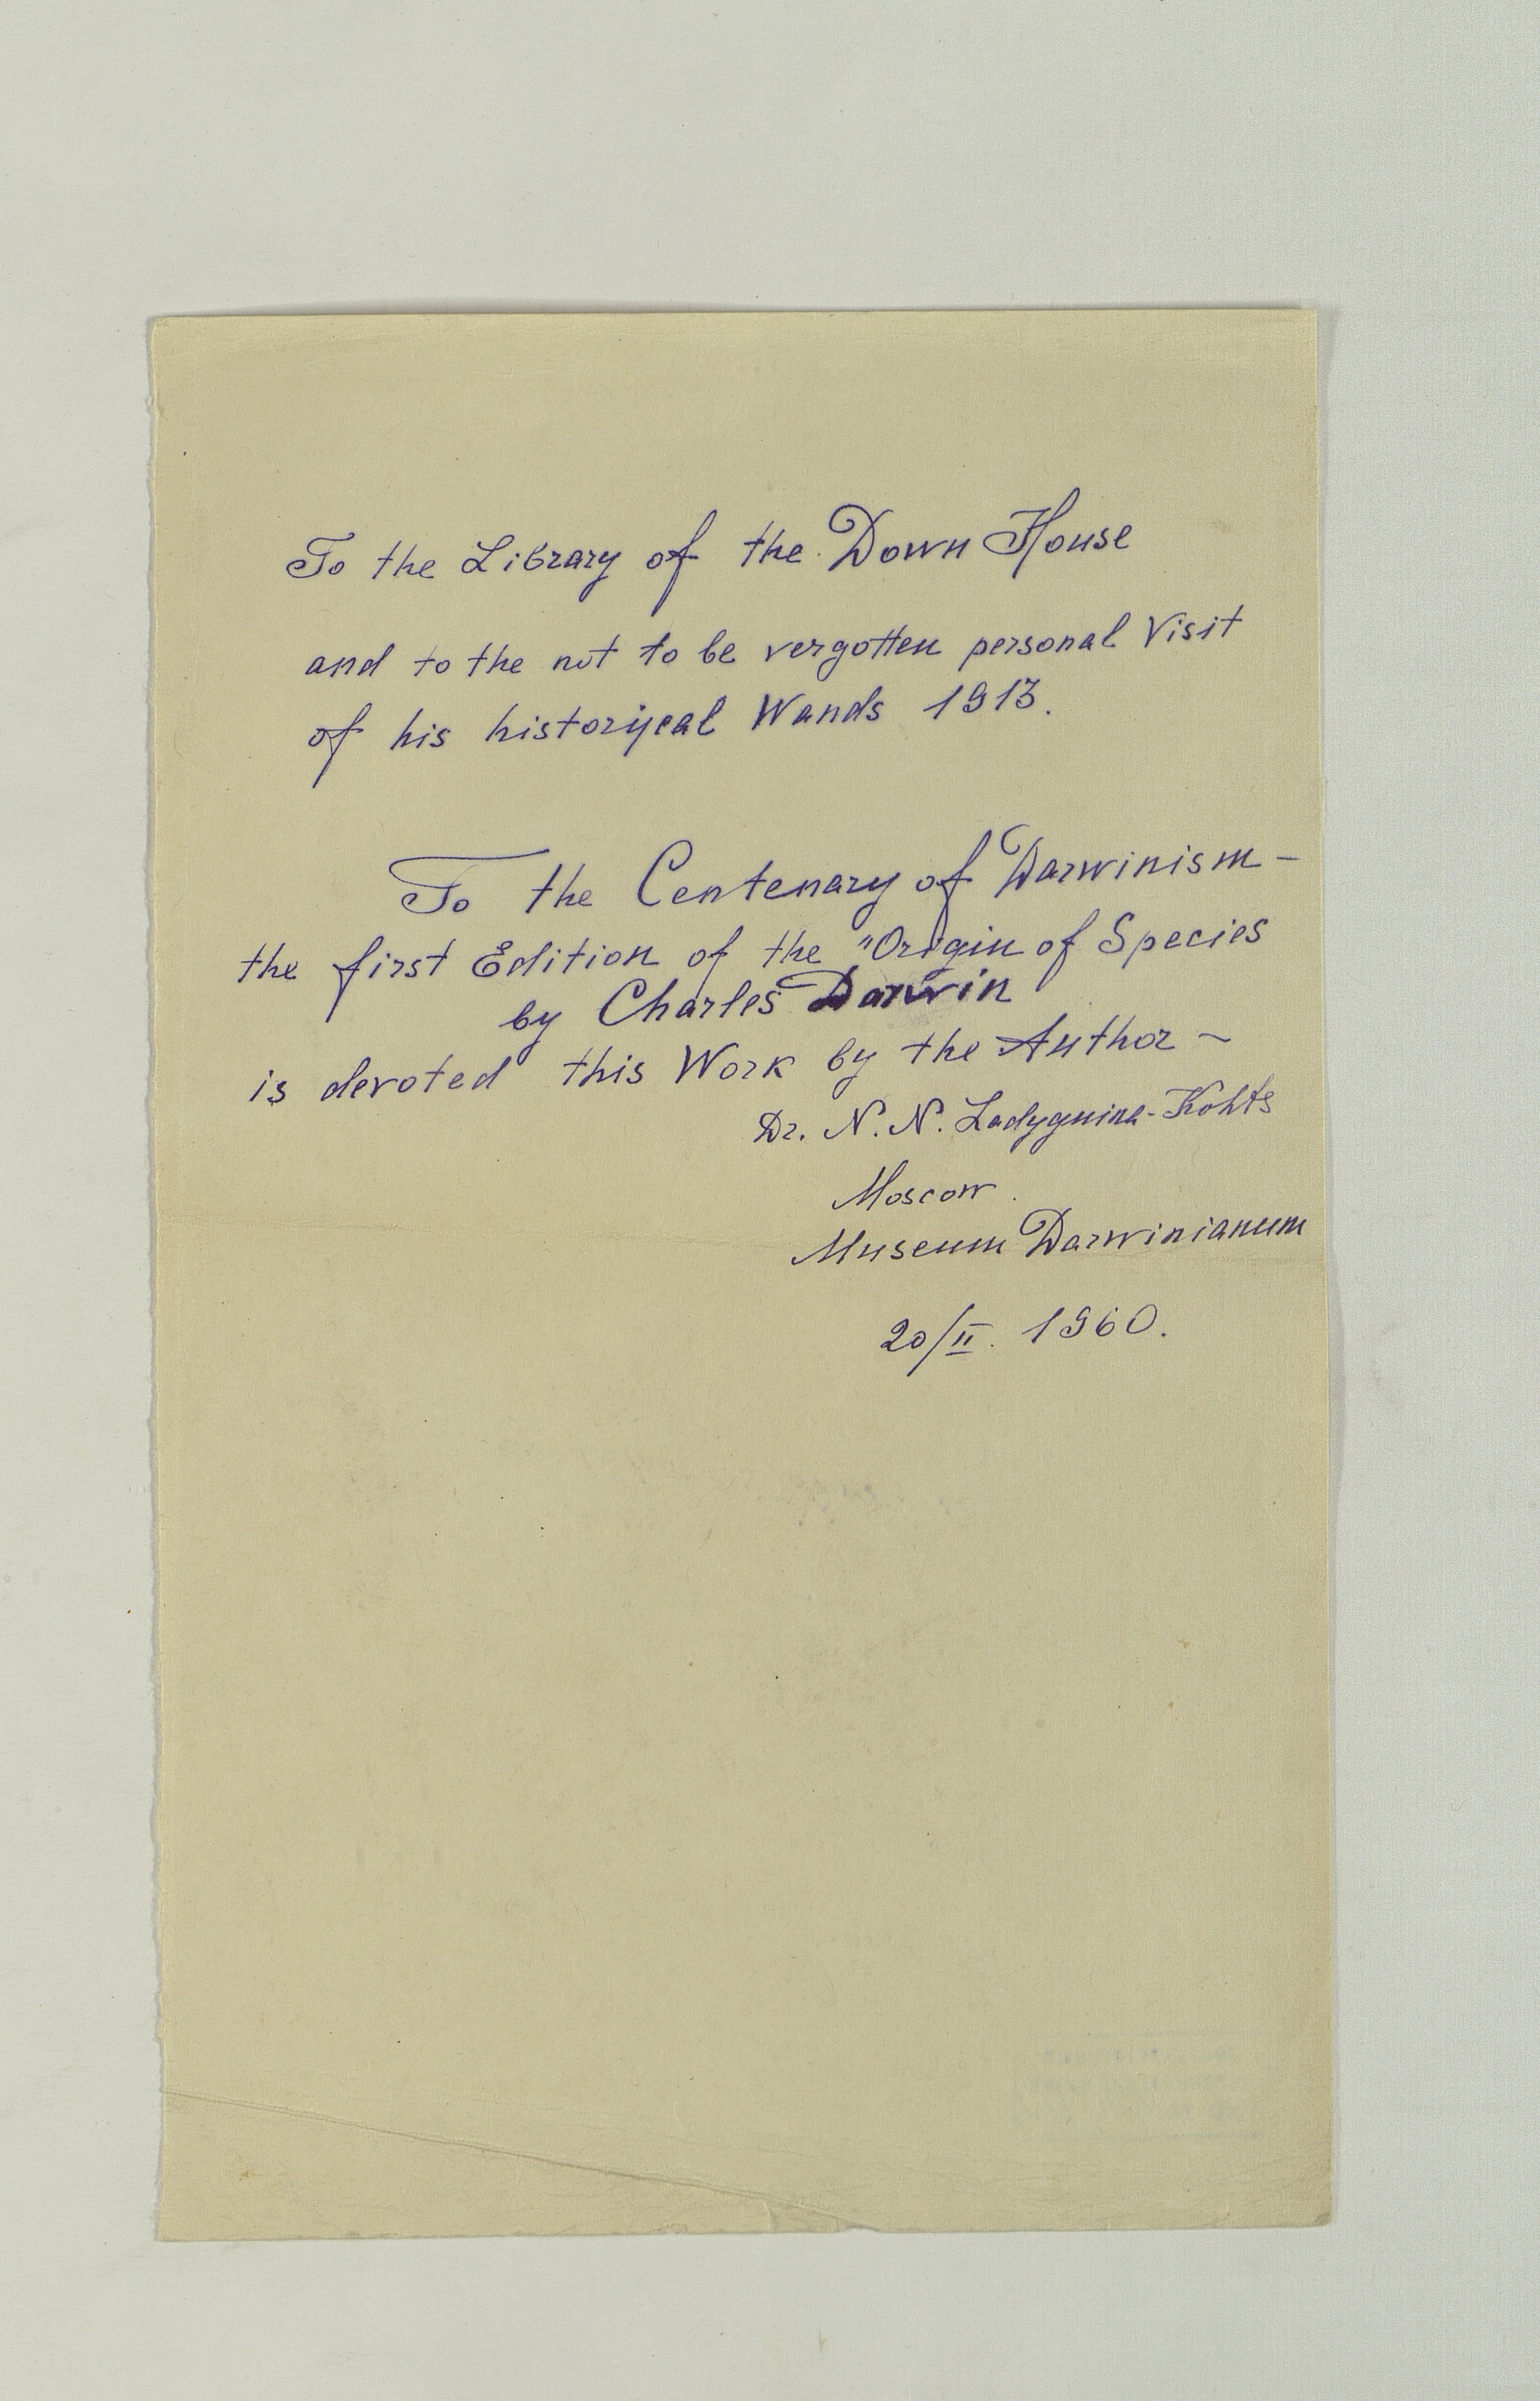 To the Library of the Down House
and to the not to be vergotten personal Visit
of his historijcal Wands 1913.
To the Centenary of Darwinism –
the first Edition of the "Origin of Species
by Charles Darwin
is devoted this Work by the Author –
Dr. N. N. Ladyguina-Kohts
Moscow.
Museum Darwinianum
20/II. 1960.